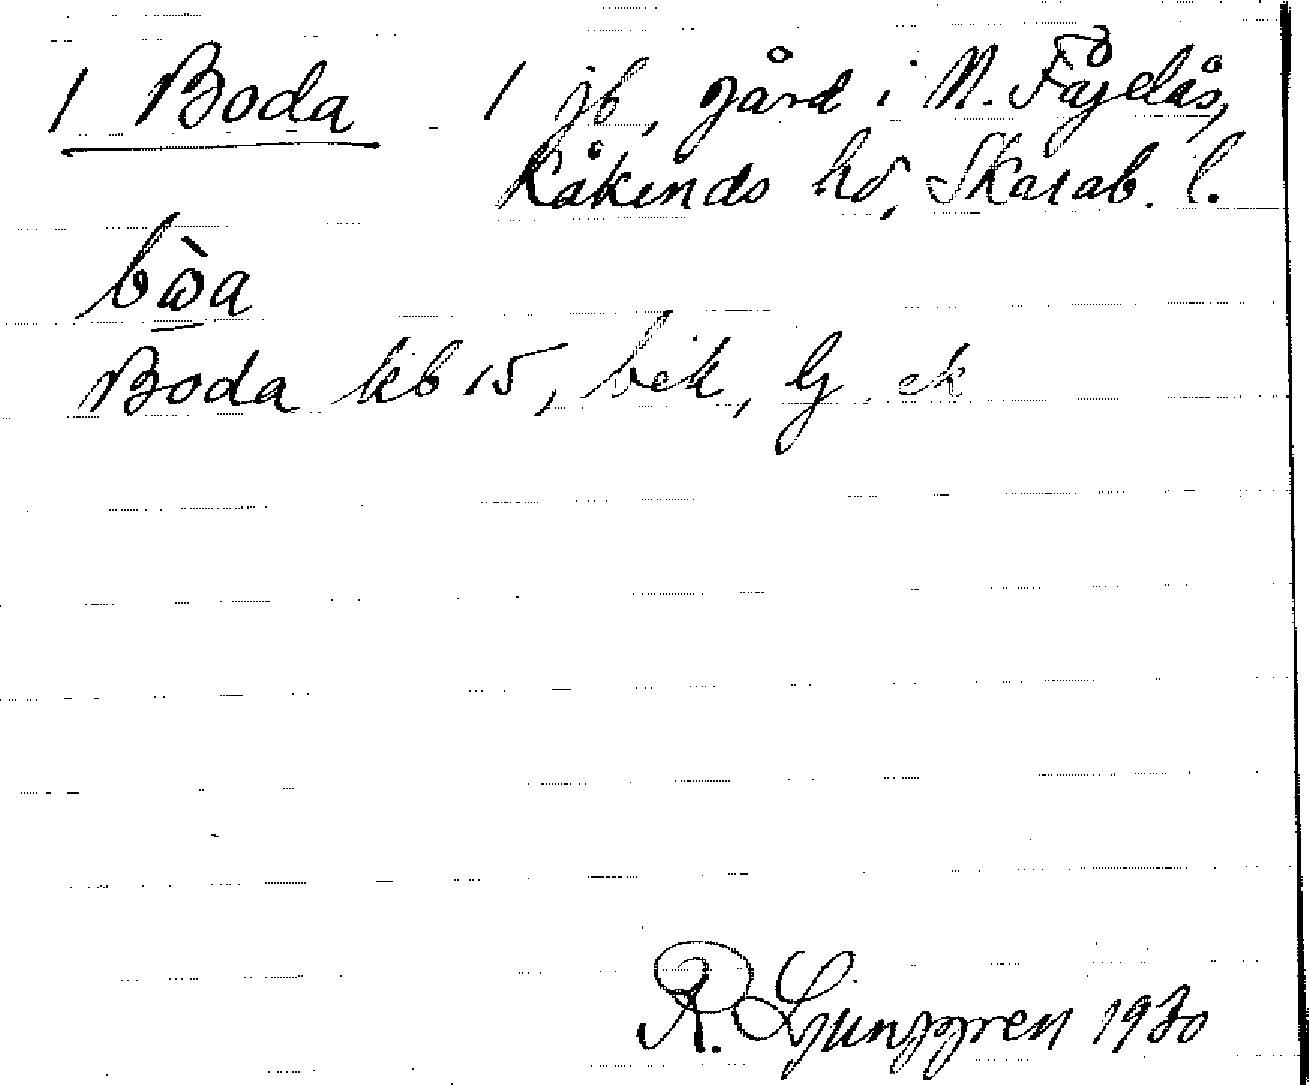 1 Boda 1 jb, gård i N. Fågelås,
Kåkinds hd, Skarab. l.
bòa
Boda kb 15, bek, Gj ek
R. Ljunggren 1930